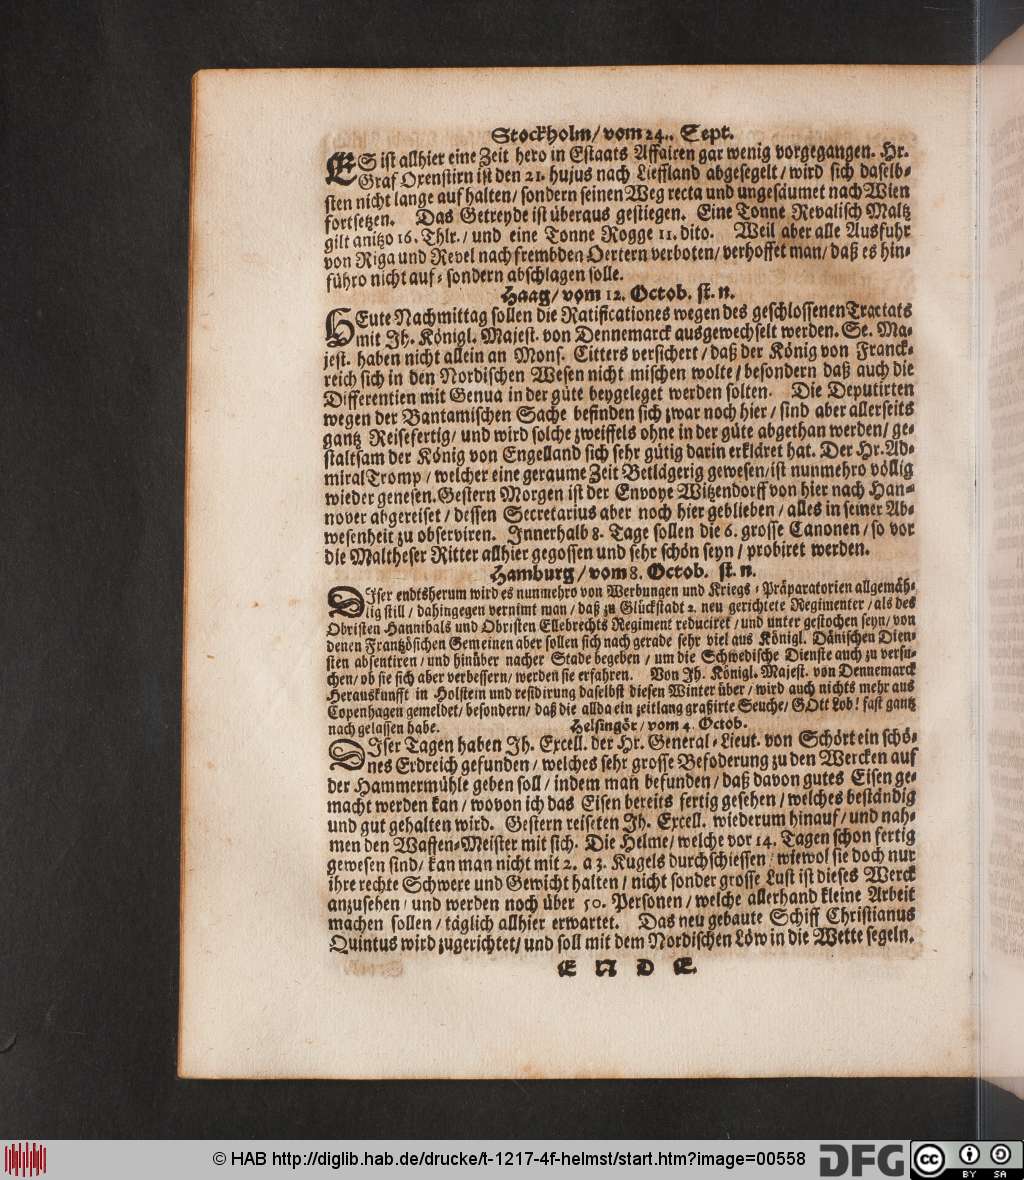 Stockholm/ vom 24.. Sept.
ES ist allhier eine Zeit hero in Estaats Affairen gar wenig vorgegangen. Hr.
Graf Oxenstirn ist den 21. hujus nach Lieffland abgesegelt / wird sich daselb-
sten nicht lange auf halten/ sondern seinen Weg recta und ungesäumet nach Wien
fortsetzen. Das Getreyde ist überaus gestiegen. Eine Tonne Revalisch Maltz
gilt anitzo 16. Thlr./ und eine Tonne Rogge 11. dito. Weil aber alle Ausfuhr
von Riga und Revel nach frembden Oertern verboten/ verhoffet man/ daß es hin-
führo nicht auf- sondern abschlagen solle.
Haag/ vom 12. Octob. st. n.
HEute Nachmittag sollen die Ratificationes wegen des geschlossenen Tractats
mit Jh. Königl. Majest. von Dennemarck ausgewechselt werden. Se. Ma-
jest. haben nicht allein an Mons. Citters versichert / daß der König von Franck-
reich sich in den Nordischen Wesen nicht mischen wolte / besondern daß auch die
Differentien mit Genua in der güte beygeleget werden solten. Die Deputirten
wegen der Bantamischen Sache befinden sich zwar noch hier / sind aber allerseits
gantz Reisefertig/ und wird solche zweiffels ohne in der güte abgethan werden/ ge-
staltsam der König von Engelland sich sehr gütig darin erkläret hat. Der Hr. Ad-
miral Tromp / welcher eine geraume Zeit Betlägerig gewesen/ ist nunmehro völlig
wieder genesen. Gestern Morgen ist der Envoye Witzendorff von hier nach Han-
nover abgereiset / dessen Secretarius aber noch hier geblieben / alles in seiner Ab-
wesenheit zu observiren. Jnnerhalb 8. Tage sollen die 6. grosse Canonen / so vor
die Maltheser Ritter allhier gegossen und sehr schön seyn / probiret werden.
Hamburg / vom 8. Octob. st. n.
DJser endtsherum wird es nunmehro von Werbungen und Kriegs - Präparatorien allgemäh-
lig still / dahingegen vernimt man / daß zu Glückstadt 2. neu gerichtete Regimenter / als des
Obristen Hannibals und Obristen Ellebrechts Regiment reduciret / und unter gestochen seyn / von
denen Frantzösichen Gemeinen aber sollen sich nach gerade sehr viel aus Königl. Dänischen Dien-
sten absentiren / und hinüber nacher Stade begeben / um die Schwedische Dienste auch zu versu-
chen/ ob sie sich aber verbessern/ werden sie erfahren. Von Jh. Königl. Majest. von Dennemarck
Herauskunfft in Holstein und residirung daselbst diesen Winter über / wird auch nichts mehr aus
Copenhagen gemeldet/ besondern/ daß die allda ein zeitlang graßirte Seuche/ GOtt Lob! fast gantz
nach gelassen habe. Helsingör/ vom 4. Octob.
DJser Tagen haben Jh. Excell. der Hr. General-Lieut. von Schört ein schö-
nes Erdreich gefunden / welches sehr grosse Befoderung zu den Wercken auf
der Hammermühle geben soll / indem man befunden / daß davon gutes Eisen ge-
macht werden kan / wovon ich das Eisen bereits fertig gesehen / welches beständig
und gut gehalten wird. Gestern reiseten Jh. Excell. wiederum hinauf / und nah-
men den Waffen-Meister mit sich. Die Helme/ welche vor 14. Tagen schon fertig
gewesen sind/ kan man nicht mit 2. a 3. Kugels durchschiessen / wiewol sie doch nur
ihre rechte Schwere und Gewicht halten / nicht sonder grosse Lust ist dieses Werck
anzusehen / und werden noch über 50. Personen / welche allerhand kleine Arbeit
machen sollen / täglich allhier erwartet. Das neu gebaute Schiff Christianus
Quintus wird zugerichtet/ und soll mit dem Nordischen Löw in die Wette segeln.
E N D E.
© HAB http://diglib.hab.de/drucke/t-1217-4f-helmst/start.htm?image=00558
DFG
cc BY SA